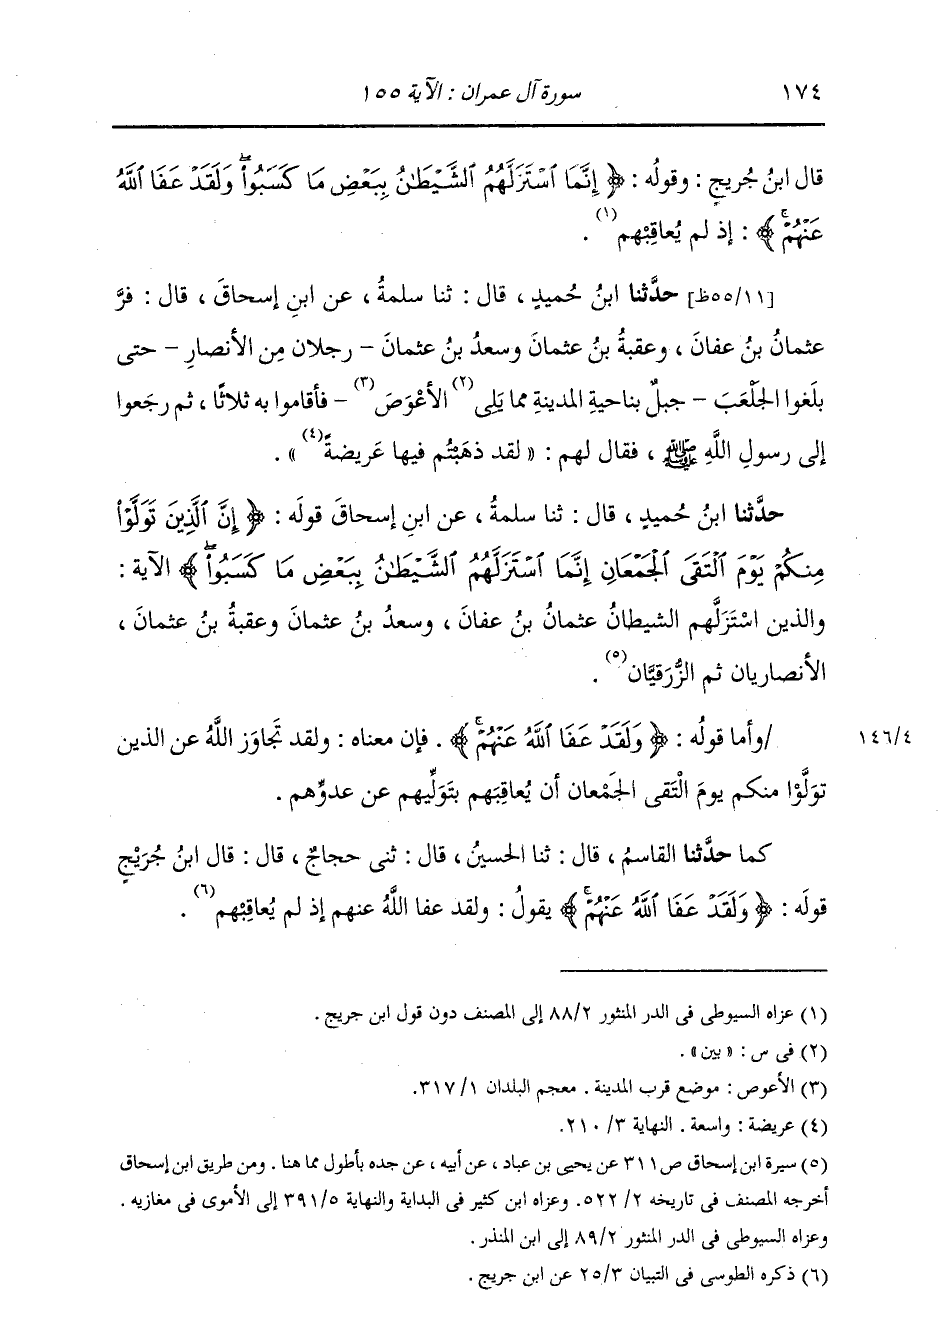 ١٧٤ سورة آل عمران : الآية ١٥٥
قال ابنُ جُريجٍ : وقولُه : ﴿ إِنَّمَا ٱسْتَزَلَّهُمُ ٱلشَّيْطَٰنُ بِبَعْضِ مَا كَسَبُوا۟ۖ وَلَقَدْ عَفَا ٱللَّهُ
عَنْهُمْۚ ﴾ : إذ لم يُعاقِبْهم(١) .
[١١/٥٥ظ] حدَّثنا ابنُ حُميدٍ ، قال : ثنا سلمةُ ، عن ابنِ إسحاقَ ، قال : فرَّ
عثمانُ بنُ عفانَ ، وعقبةُ بنُ عثمانَ وسعدُ بنُ عثمانَ – رجلان مِن الأنصارِ – حتى
بلَغوا الجَلْعَبَ – جبلٌ بناحيةِ المدينةِ مما يَلِى(٢) الأعْوَصَ(٣) – فأقاموا به ثلاثًا ، ثم رجَعوا
إلى رسولِ اللَّهِ ﷺ ، فقال لهم : « لقد ذهَبْتُم فيها عَريضةً(٤) » .
حدَّثنا ابنُ حُميدٍ ، قال : ثنا سلمةُ ، عن ابنِ إسحاقَ قولَه : ﴿ إِنَّ ٱلَّذِينَ تَوَلَّوْا۟
مِنكُمْ يَوْمَ ٱلْتَقَى ٱلْجَمْعَانِ إِنَّمَا ٱسْتَزَلَّهُمُ ٱلشَّيْطَٰنُ بِبَعْضِ مَا كَسَبُوا۟ۖ ﴾ الآية :
والذين اسْتَزَلَّهم الشيطانُ عثمانُ بنُ عفانَ ، وسعدُ بنُ عثمانَ وعقبةُ بنُ عثمانَ ،
الأنصاريان ثم الزُّرَقيَّان(٥) .
٤/١٤٦ /وأما قولُه : ﴿ وَلَقَدْ عَفَا ٱللَّهُ عَنْهُمْۚ ﴾ . فإن معناه : ولقد تَجاوَز اللَّهُ عن الذين
توَلَّوْا منكم يومَ الْتَقى الجَمْعان أن يُعاقِبَهم بتَوَلِّيهم عن عدوِّهم .
كما حدَّثنا القاسمُ ، قال : ثنا الحسينُ ، قال : ثنى حجاجٌ ، قال : قال ابنُ جُرَيْجٍ
قولَه : ﴿ وَلَقَدْ عَفَا ٱللَّهُ عَنْهُمْۚ ﴾ يقولُ : ولقد عفا اللَّهُ عنهم إذ لم يُعاقِبْهم(٦) .
(١) عزاه السيوطى فى الدر المنثور ٨٨/٢ إلى المصنف دون قول ابن جريج .
(٢) فى س : « بين » .
(٣) الأعوص : موضع قرب المدينة . معجم البلدان ١/ ٣١٧.
(٤) عريضة : واسعة . النهاية ٣/ ٢١٠.
(٥) سيرة ابن إسحاق ص ٣١١ عن يحيى بن عباد ، عن أبيه ، عن جده بأطول مما هنا . ومن طريق ابن إسحاق
أخرجه المصنف فى تاريخه ٢/ ٥٢٢. وعزاه ابن كثير فى البداية والنهاية ٣٩١/٥ إلى الأموى فى مغازيه .
وعزاه السيوطى فى الدر المنثور ٨٩/٢ إلى ابن المنذر .
(٦) ذكره الطوسى فى التبيان ٢٥/٣ عن ابن جريج .